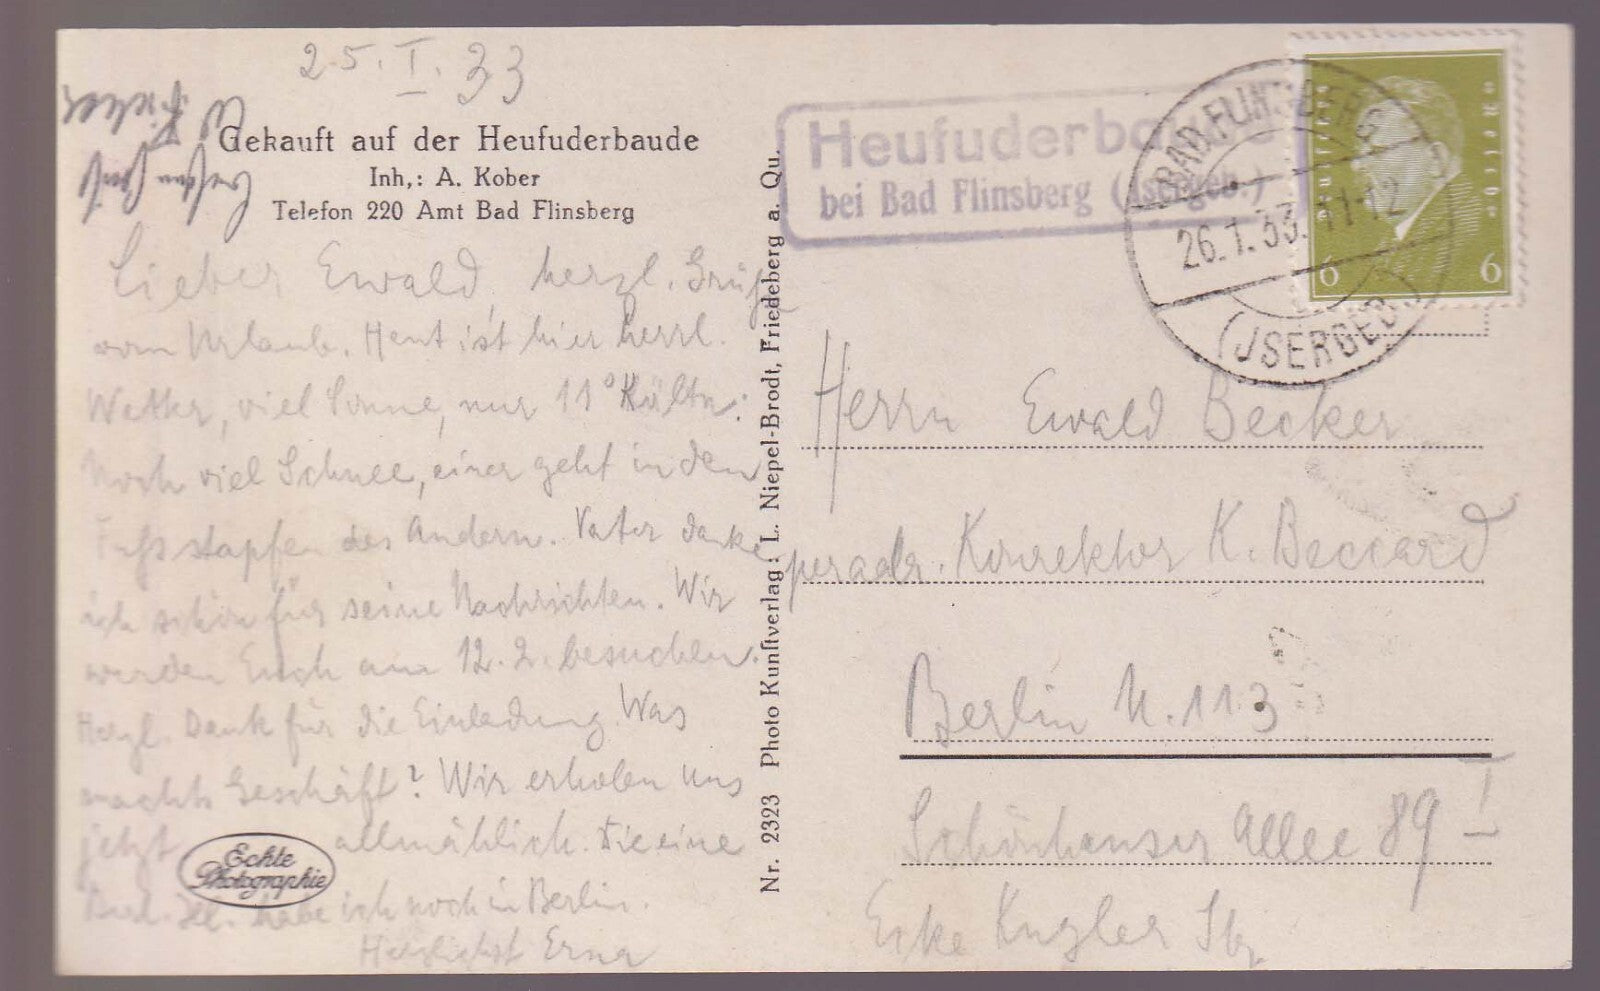 25. I. 33
Gekauft auf der Heufuderbaude
Inh,: A. Kober
Telefon 220 Amt Bad Flinsberg
Lieber Ewald, herzl. Grüße
vom Urlaub. Heut ist hier herrl.
Wetter, viel Sonne, nur 11° Kälte.
Noch viel Schnee, einer geht in den
Fußstapfen des Andern. Vater danke
ich schön für seine Nachrichten. Wir
werden Euch am 12. 2. besuchen.
Herzl. Dank für die Einladung. Was
machts Geschäft? Wir erholen uns
jetzt allmählich. Die eine
habe ich noch in Berlin.
Herzlichst Erna
Echte
Photographie
Nr. 2323 Photo Kunstverlag: L. Niepel-Brodt, Friedeberg a. Qu.
Heufuderbaude
bei Bad Flinsberg (Isergeb.)
BAD FLINSBERG
26.1.33. 11-12
(JSERGEB.)
Deutsches Reich
6 6
Herrn Ewald Becker
per adr. Konrektor K. Beccard
Berlin N. 113
Schönhauser Allee 89 I
Ecke Kugler Str